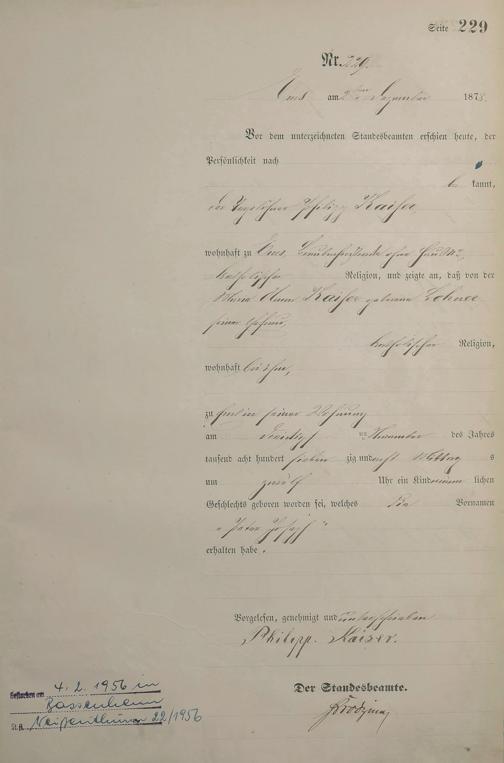 Seite 229
Nr. 229.
Ems am 2ten Dezember 187
Vor dem unterzeichneten Standesbeamten erschien heute, der
Persönlichkeit nach
be kannt,
der Tagelöhner Philipp Kaiser
wohnhaft zu Ems,
katholischer Religion, und zeigte an, daß von der
Anna Kaiser geborene
seiner Ehefrau,
katholischer Religion,
wohnhaft bei ihm,
zu Ems in seiner Wohnung
am November des Jahres
tausend acht hundert sieben zig und acht Mittags
um zwölf Uhr ein Kind männ lichen
Geschlechts geboren worden sei, welches die Vornamen
„Peter Joseph“
erhalten habe.
Vorgelesen, genehmigt und unterschrieben
Philipp Kaiser.
Der Standesbeamte.
Gestorben am 4. 2. 1956 in
Bassenheim
St. A. 22/1956